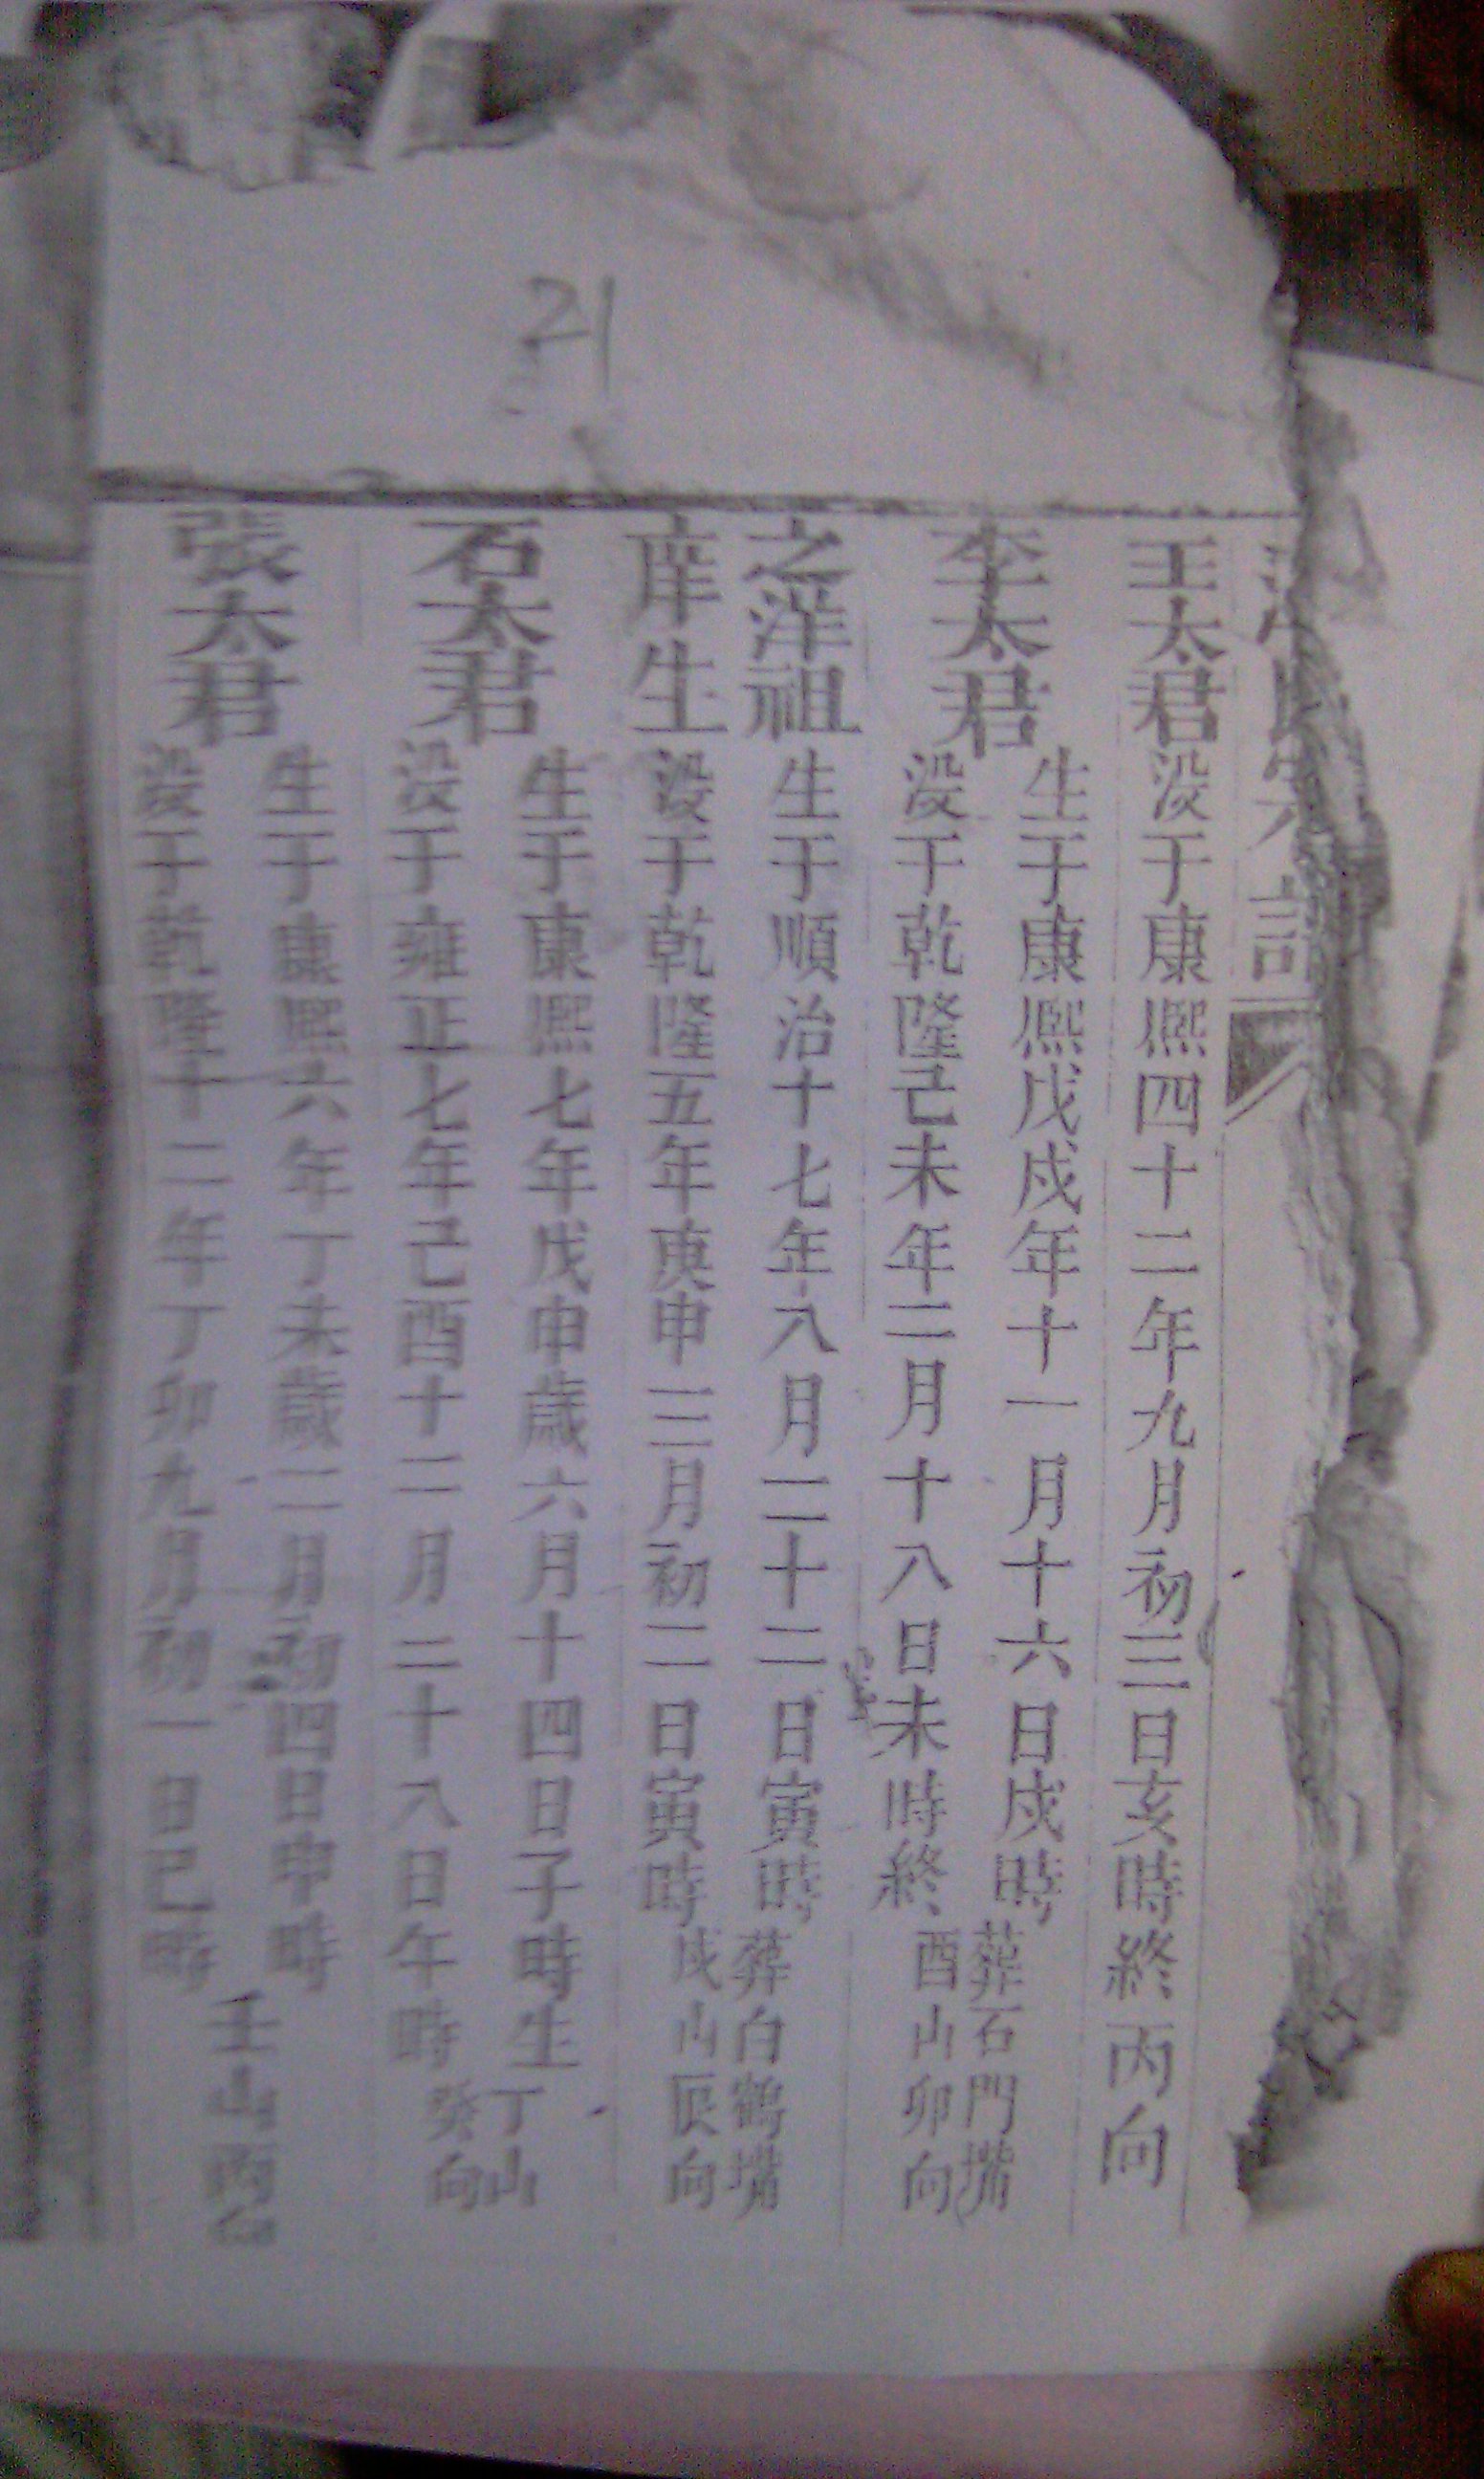 21
王太君 没于康熙四十二年九月初三日亥時終丙向
李太君
生于康熙戊戌年十一月十六日戌時
没于乾隆己未年二月十八日未時終
葬石門嘴
酉山卯向
之洋祖
庠生
生于順治十七年八月二十二日寅時
没于乾隆五年庚申三月初二日寅時
葬白鶴嘴
戌山辰向
石太君
生于康熙七年戊申歲六月十四日子時生
没于雍正七年己酉十二月二十八日午時
丁山
癸向
張太君
生于康熙六年丁未歲二月初四日申時
没于乾隆十二年丁卯九月初一日巳時
壬山丙向